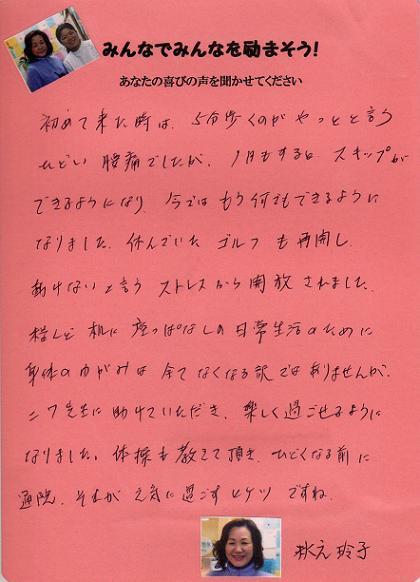 みんなでみんなを励まそう!
あなたの喜びの声を聞かせてください
初めて来た時は、5分歩くのがやっとと言う
ひどい腰痛でしたが、1月もすると スキップが
できるようになり、今ではもう何でもできるように
なりました。休んでいた ゴルフも再開し、
動けないと言う ストレスから開放されました。
殆んど机に座っぱなしの日常生活のために
身体のゆがみは全てなくなる訳ではありませんが、
先生に助けていただき、楽しく過ごせるように
なりました。体操も教えて頂き、ひどくなる前に
通院、それが元気に過ごすヒケツですね。
秋元 玲子